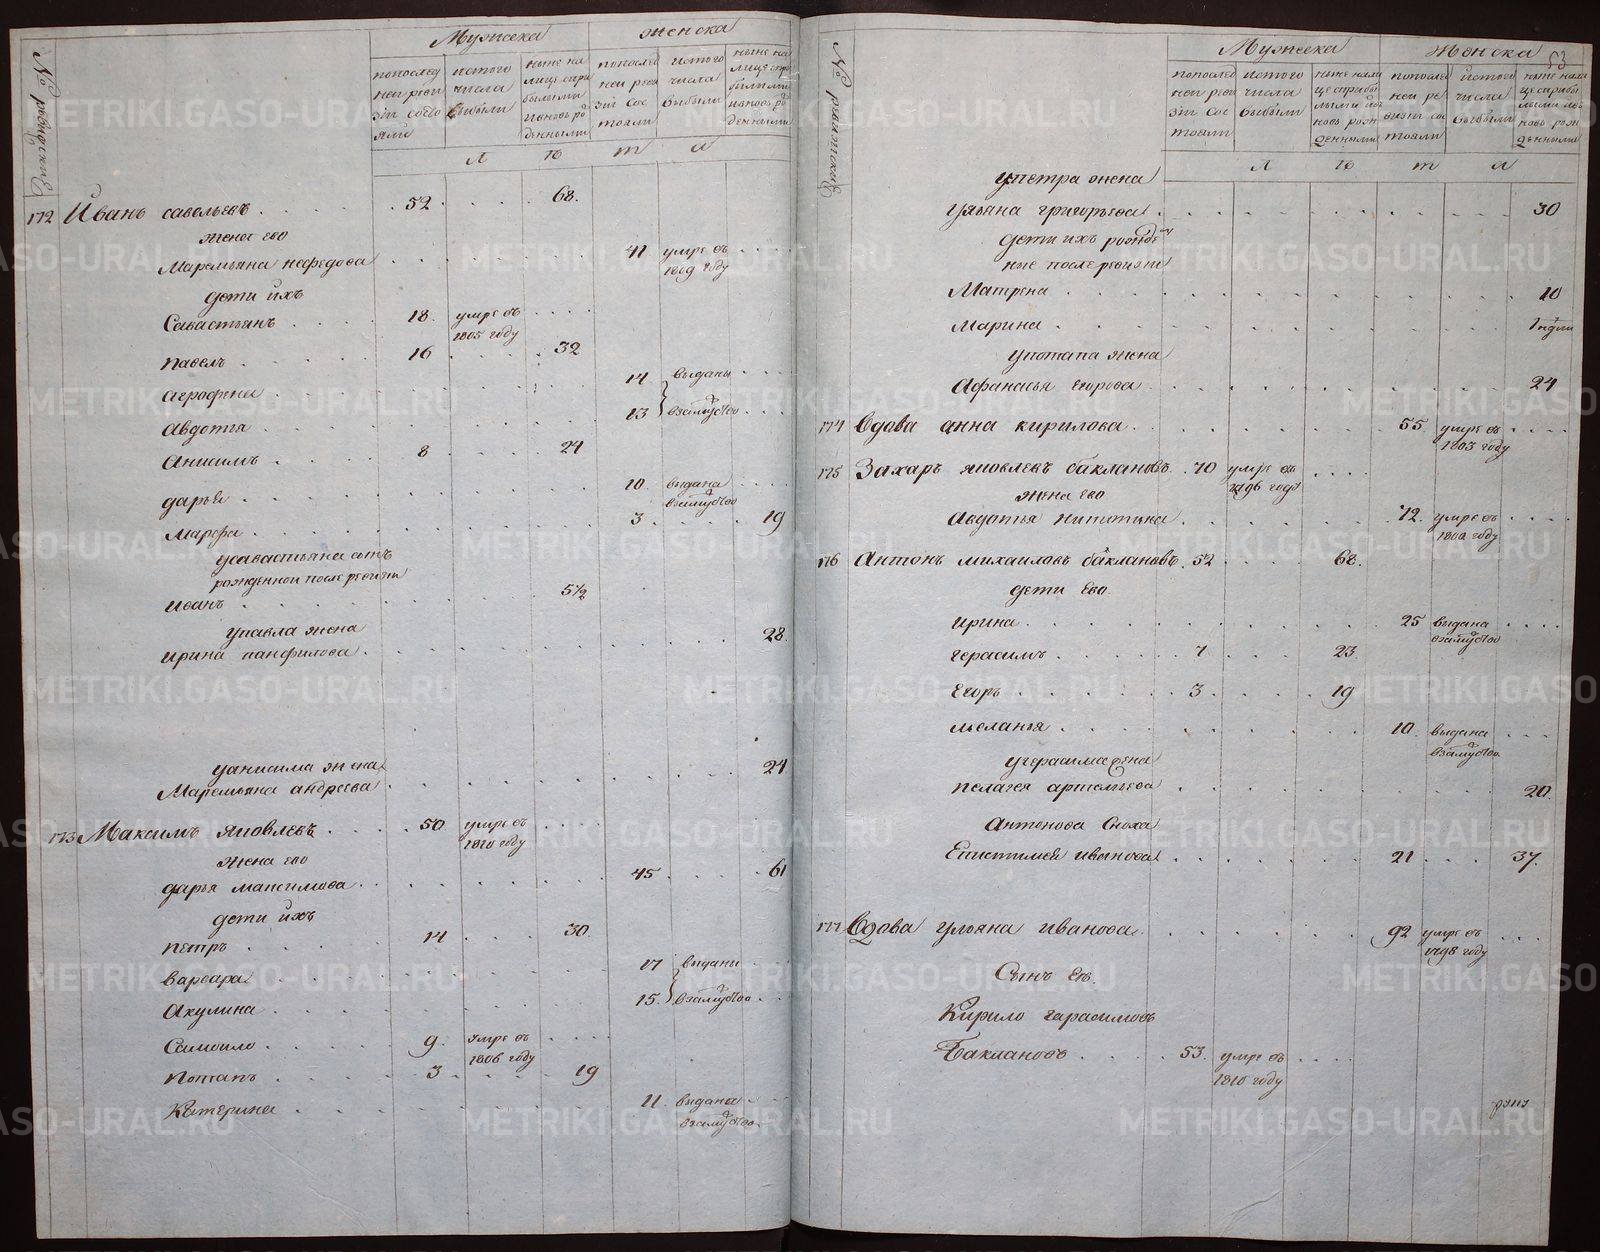 № ревижския
Мужеска
женска
попослед ней реви зіи состо яли
истого числа выбыли
ныне на лице спри былыми ивновь ро жденными
попослед ней реви зіи сос тояли
истого числа выбыли
ныне на лице спри былыми ивновь ро жденными
л ѣ т а
172 Иванъ савельевъ 52 68.
жена ево
Маремьяна нефедова 41 умре въ 1809 году
дети ихъ
Савастьянъ 18. умре въ 1805 году
павелъ 16 32
агрофена 14 выданы
Авдотья 13 взамужство
Анисимъ 8 24
дарья 10. выдана взамужство
марфа 3 19
усавастьяна сынъ
рожденной послеревизии
иванъ 5½
упавла жена
ирина панфилова 28.
уанисима жена
Маремьяна андреева 24
173 Максимъ яковлевъ 50 умре въ 1810 году
жена ево
дарья максимова 45 61
дети ихъ
петръ 14 30.
варвара 17 выданы
Акулина 15. взамужство
Самоило 9. умре въ 1806 году
потапъ 3 19
Катерина 11. выдана взамужство
53
№ ревижския
Мужеска
женска
попослед ней реви зіи сос тояли
истого числа выбыли
ныне нали це сприбы лыми ив новь рож денными
попослед ней ре визіи со стояли
истого числа выбыли
ныне нали це сприбы лыми ив новь рож денными
л ѣ т а
упетра жена
Ульяна григорьева 30
дети ихъ рожден
ные послеревизіи
Матрена 10
Марина 1 нѣдли
употапа жена
Афанасья егорова 24
174 Вдова анна кирилова 55 умре въ 1803 году
175 Захаръ яковлевъ баклановъ 70 умре въ 1796 году
жена ево
Авдотья никитина 72. умре въ 1802 году
176 Антонъ михаиловъ баклановъ 52 68.
дети ево
ирина 25 выдана взамужство
герасимъ 7 23.
Егоръ 3 19
меланья 10. выдана взамужство
угерасима жена
пелагея артемьева 20.
Антонова Сноха
Епистимея иванова 21 37.
177 Вдова ульяна иванова 92 умре въ 1798 году
Сынъ Ея
Кирило гарасимовъ
Баклановъ 53. умре въ 1810 году